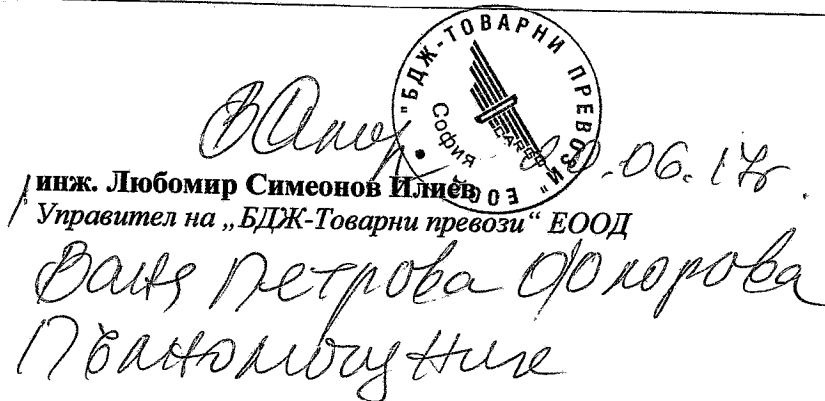 "БДЖ-ТОВАРНИ ПРЕВОЗИ" ЕООД
София
CARGO
.06.17г.
/инж. Любомир Симеонов Илиев
Управител на „БДЖ-Товарни превози“ ЕООД
Ваня Петрова
Пълномощник